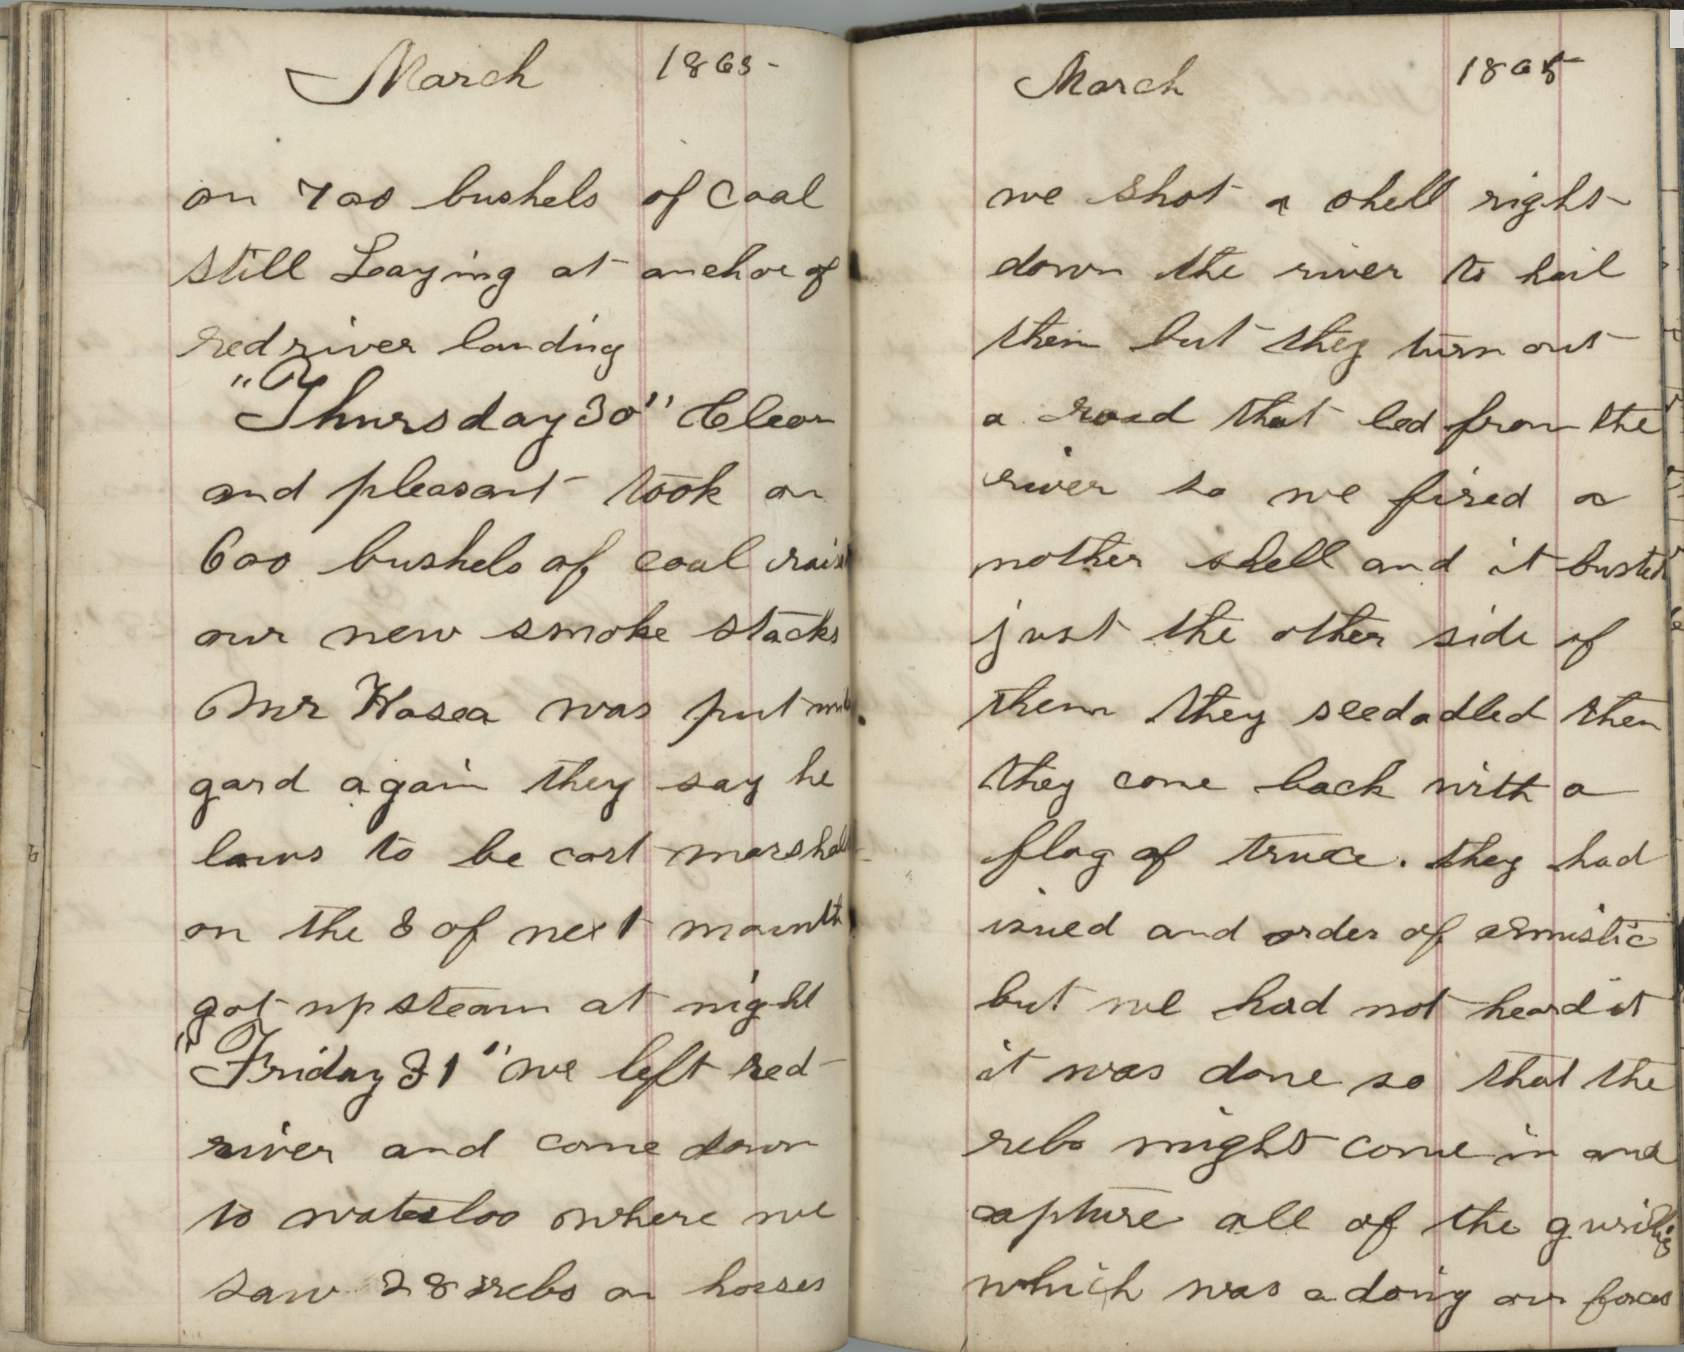 March 1865-
on 700 bushels of Coal
still Laying at anchor of
red river landing
"Thursday 30" Clear
and pleasant took on
600 bushels of coal rais
our new smoke stacks
Mr Hosea was put
gard again they say he
to be cort marshal
on the 8 of next mounth
got up steam at night
"Friday 31" we left red
river and come down
to waterloo where we
saw 28 rebs on horses
March 1865
we shot a shell right
down the river to hail
them but they turn out
a road that led from the
river so we fired a
nother shell and it busted
just the other side of
them they seedadled then
they come back with a
flag of truce. they had
isued and order of armistic
but we had not heard it
it was done so that the
rebs might come in and
capture all of the
which was a doing our forces